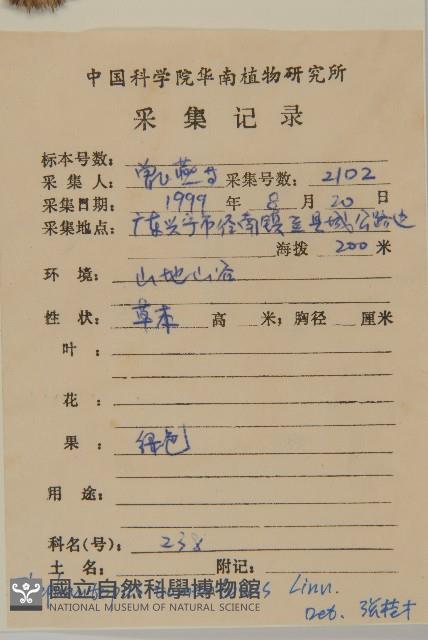 中国科学院华南植物研究所
采集记录
标本号数:
采集人: 曾飞燕 采集号数: 2102
采集日期: 1999 年 8 月 20 日
采集地点: 广东兴宁市径南镇至县城公路边
海拨 200 米
环境: 山地山谷
性状: 草本 高 米; 胸径 厘米
叶:
花:
果: 绿色
用途:
科名(号): 238
土名: 附记:
Linn.
國立自然科學博物館
NATIONAL MUSEUM OF NATURAL SCIENCE
Det. 张桂才